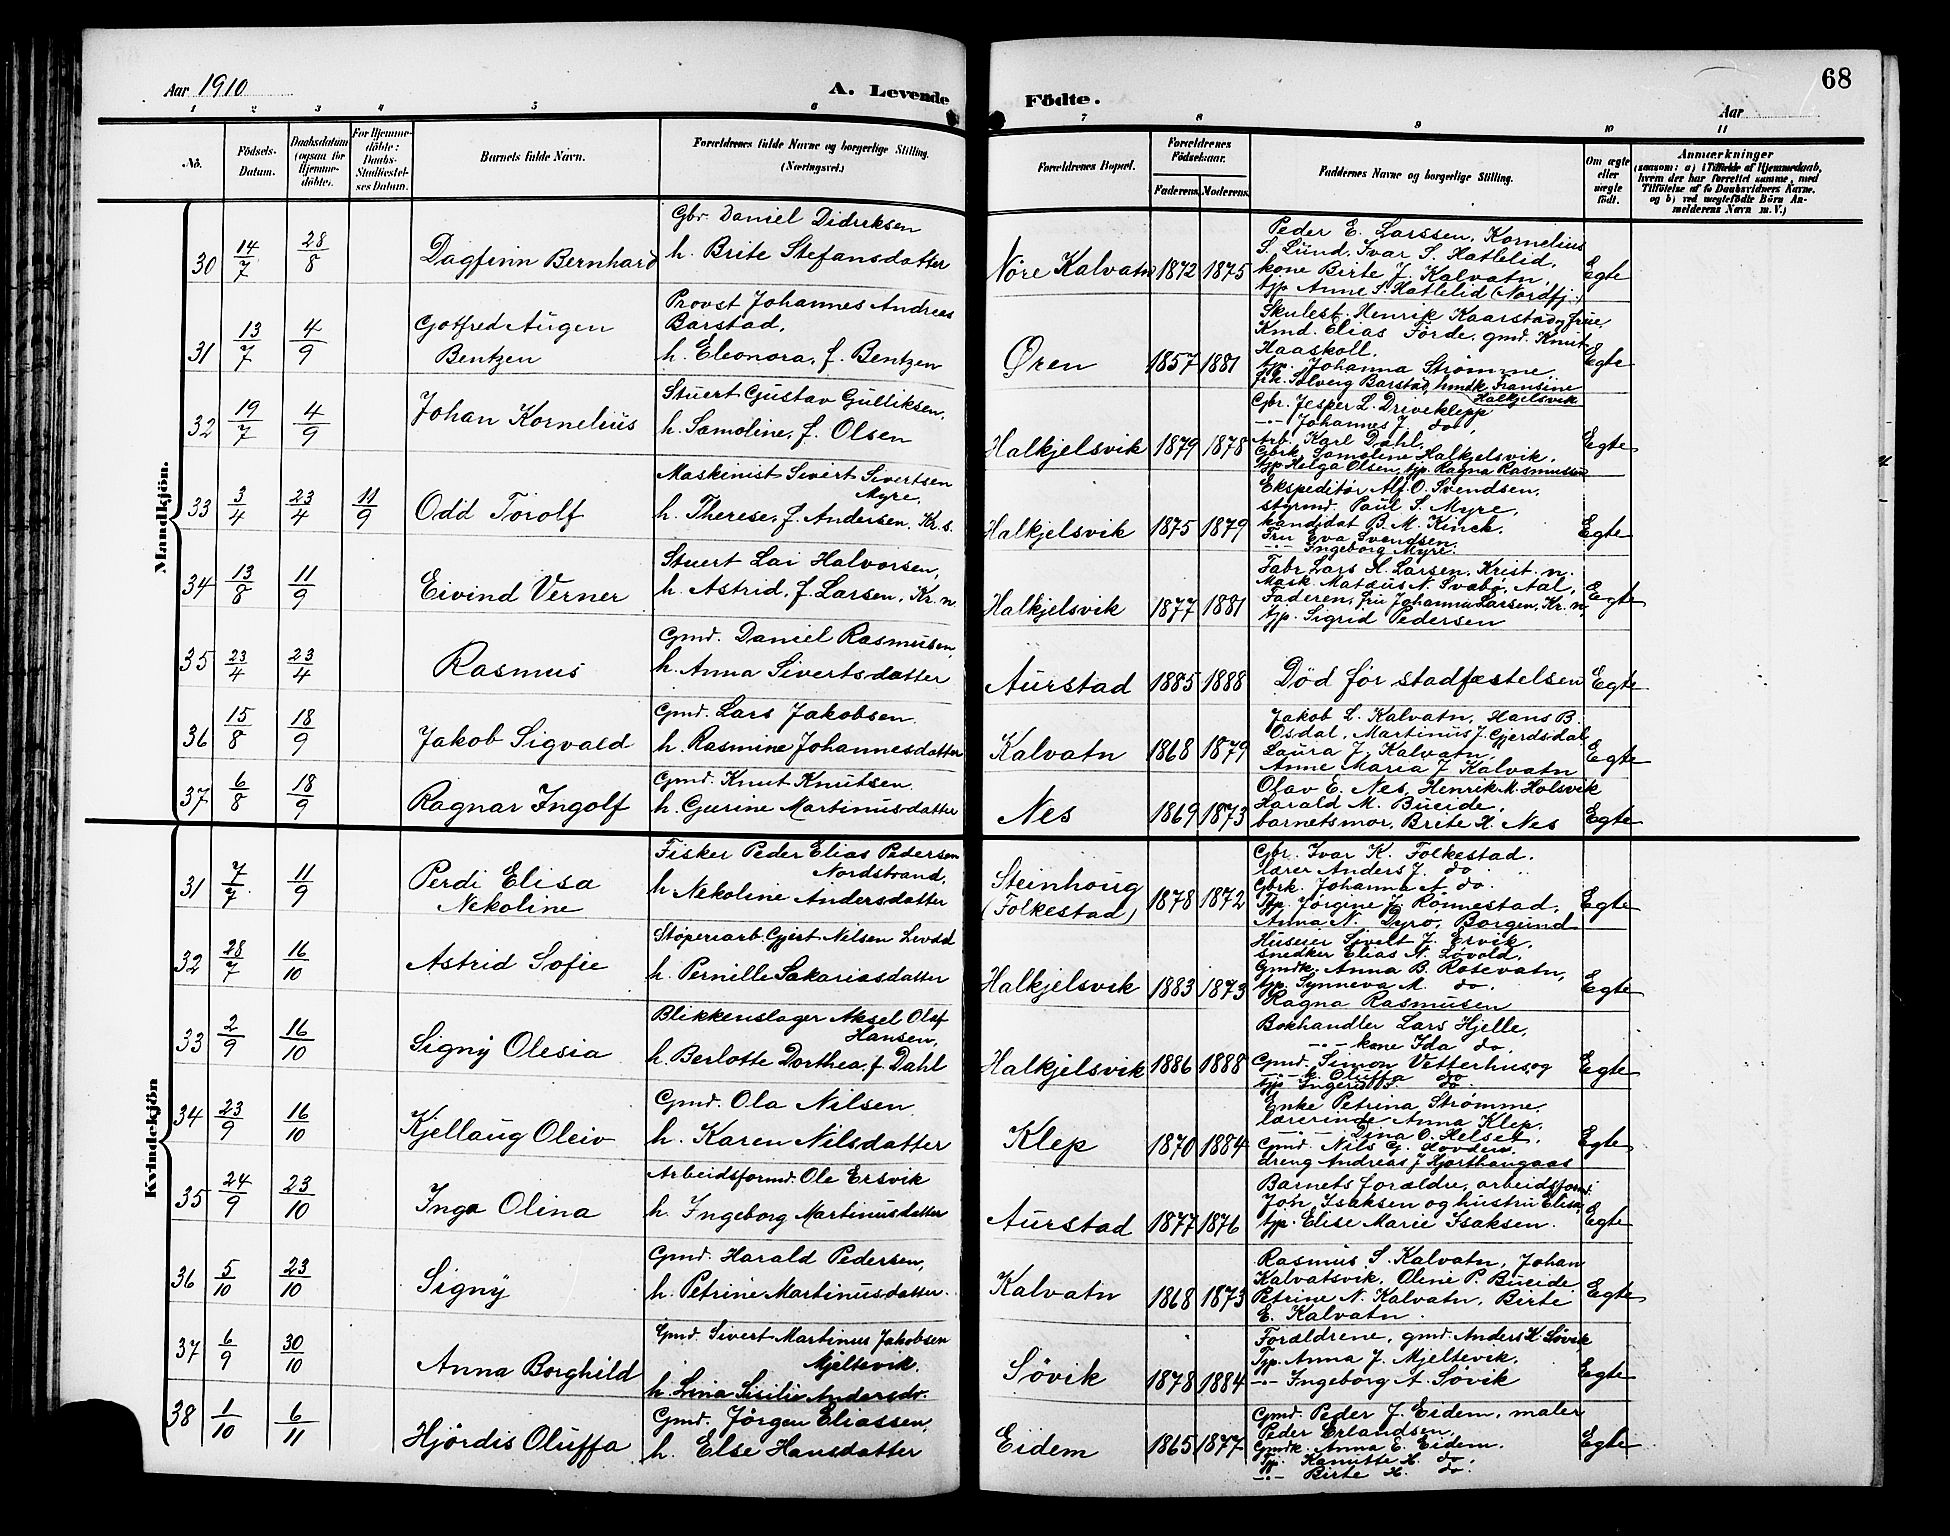 Aar 1910
A. Levende Födte.
68
Aar
1 2 3 4 5 6 7 8 9 10 11
No.
Födsels-Datum.
Daabsdatum (ogsaa for Hjemmedöbte).
For Hjemmedöbte: Daabs-Stadfæstelses Datum.
Barnets fulde Navn.
Forældrenes fulde Navne og borgerlige Stilling.
(Næringsvei.)
Forældrenes Bopæl.
Forældrenes Födselsaar.
Faderens. Moderens.
Faddernes Navne og borgerlige Stilling.
Om ægte eller uægte födt.
Anmærkninger
(saasom: a) i Tilfælde af Hjemmedaab, hvem der har forrettet samme, med Tilföielse af to Daabsvidners Navne. og b) ved uægtefödte Börn Anmelderens Navn m. V.)
Mandkjön.
30 14/7 28/8 Dagfinn Bernhard
Gbr. Daniel Didriksen
h. Brite Stefansdatter
Nore Kalvatn 1872 1875
Peder E. Larssen, Kornelius
S. Lund, Ivar S. Hatlelid,
kone Birte J. Kalvatn,
tjp Anne S. Hatlelid (Nordfj.)
Egte
31 13/7 4/9 Gotfred Augen
Bentzen
Provst Johannes Andreas
Barstad,
h. Eleonora, f. Bentzen
Øren 1857 1881
Skulest. Henrik Kaarstad og frue,
Kmd. Elias Förde, gmd. Knut
Haaskoll.
tjp. Johanna Strømme,
frk. Solveig Barstad, hmdk Fransine
Halkjelsvik
Egte
32 19/7 4/9 Johan Kornelius
Stuert Gustav Gulliksen,
h. Samoline, f. Olsen
Halkjelsvik 1879 1878
Gbr. Jesper L. Driveklepp
-"- Johannes J. do,
Arb. Karl Dahl,
Gbrk. Samoline Halkjelsvik,
tjp Helga Olsen, tjp. Ragna Rasmussen
Egte
33 3/4 23/4 11/9 Odd Torolf
Maskinist Sivert Sivertsen
Myre,
h. Therese, f. Andersen, Kr. s.
Halkjelsvik 1875 1879
Ekspeditör Alf O. Svendsen,
styrmd. Paul S. Myre,
kandidat B. M. Kinck.
Fru Eva Svendsen,
-"- Ingeborg Myre.
Egte
34 13/8 11/9 Eivind Verner
Stuert Lai Halvorsen,
h. Astrid, f. Larsen, Kr. n.
Halkjelsvik 1877 1881
Fabr Lars H. Larsen, Krist. n.
Mask. Matæus N. Svabø, Aal,
Faderen, fru Johanna Larsen, Kr. n,
tjp. Sigrid Pedersen
Egte
35 23/4 23/4 Rasmus
Gmd. Daniel Rasmusen,
h. Anna Sivertsdatter
Aurstad 1885 1888
Död för stadfæstelsen
Egte
36 15/8 18/9 Jakob Sigvald
Gmd. Lars Jakobsen
h. Rasmine Johannesdatter
Kalvatn 1868 1879
Jakob L. Kalvatn, Hans B.
Osdal, Martinus J. Gjerdsdal
Laura J. Kalvatn,
Anne Maria J. Kalvatn
Egte
37 6/8 18/9 Ragnar Ingolf
Gmd. Knut Knutsen
h. Gurine Martinusdatter
Nes 1869 1873
Olav E. Nes, Henrik M. Holsvik
Harald M. Bueide,
barnetsmor, Brite H. Nes
Egte
Kvindekjön
31 7/7 11/9 Perdi Elisa
Nekoline
Fisker Peder Elias Pedersen
Nordstrand,
h Nekoline Andersdatter
Steinhoug
(Folkestad) 1878 1872
Gbr. Ivar K. Folkestad.
lærer Anders J. do.
Gbrk. Johanna A do.
Tjp. Jörgine J. Rönnestad,
Anna N. Dyrö, Borgund
Egte
32 28/7 16/10 Astrid Sofie
Støperiarb. Gjert Nilsen Levold
h. Pernille Sakariasdatter
Halkjelsvik 1883 1873
Huseier Sivelt J. Ervik,
snedker Elias N. Løvold,
Gmdk. Anna B. Rotevatn,
tjp. Synneva A. do.
Ragna Rasmusen
Egte
33 2/9 16/10 Signy Olesia
Blikkenslager Aksel Olaf
Hansen,
h. Berlotte Dorthea, f Dahl
Halkjelsvik 1886 1888
Bokhandler Lars Hjelle,
-"- kone Ida do,
Gmd. Simon Vatterhus, og
-"- k. Oluffa do
tjp. Ingerid S. do.
Egte
34 23/9 16/10 Kjellaug Oleiv
Gmd. Ola Nilsen
h. Karen Nilsdatter
Klep 1870 1884
Enke Petrina Strømme.
lærerinde Anna Klep,
-"- Dina O. Helset,
Gmd. Nils G. Hovden,
dreng Andreas J Hjorthaugaas
Egte
35 24/9 23/10 Inga Olina
Arbeidsformd. Ole Ersvik
h. Ingeborg Martinusdatter
Aurstad 1877 1876
Barnets forældre, arbeidsformd.
Joh. Isaksen og hustru Elisa,
tjp. Elise Marie Isaksen.
Egte
36 5/10 23/10 Signy
Gmd. Harald Pedersen,
h. Petrine Martinusdatter.
Kalvatn 1868 1873
Rasmus S. Kalvatn, Johan
Kalvatsvik, Oline P. Bueide
Petrine N. Kalvatn, Birte
E. Kalvatn.
Egte
37 6/9 30/10 Anna Borghild
Gmd. Sivert Martinus Jakobsen
Mjeltevik.
h. Lina Sisilie Andersdr.
Søvik 1878 1884
Forældrene, gmd. Anders K. Søvik
Tjp. Anna J. Mjeltevik.
-"- Ingeborg A. Søvik
Egte
38 1/10 6/11 Hjördis Oluffa
Gmd. Jörgen Eliassen,
h. Else Hansdatter
Eidem 1865 1877
Gmd. Peder J. Eidem, maler
Peder Erlandsen,
Gmdk. Anna E. Eidem.
Tjp. Kanutte H. do.
-"- Birte H. do.
Egte